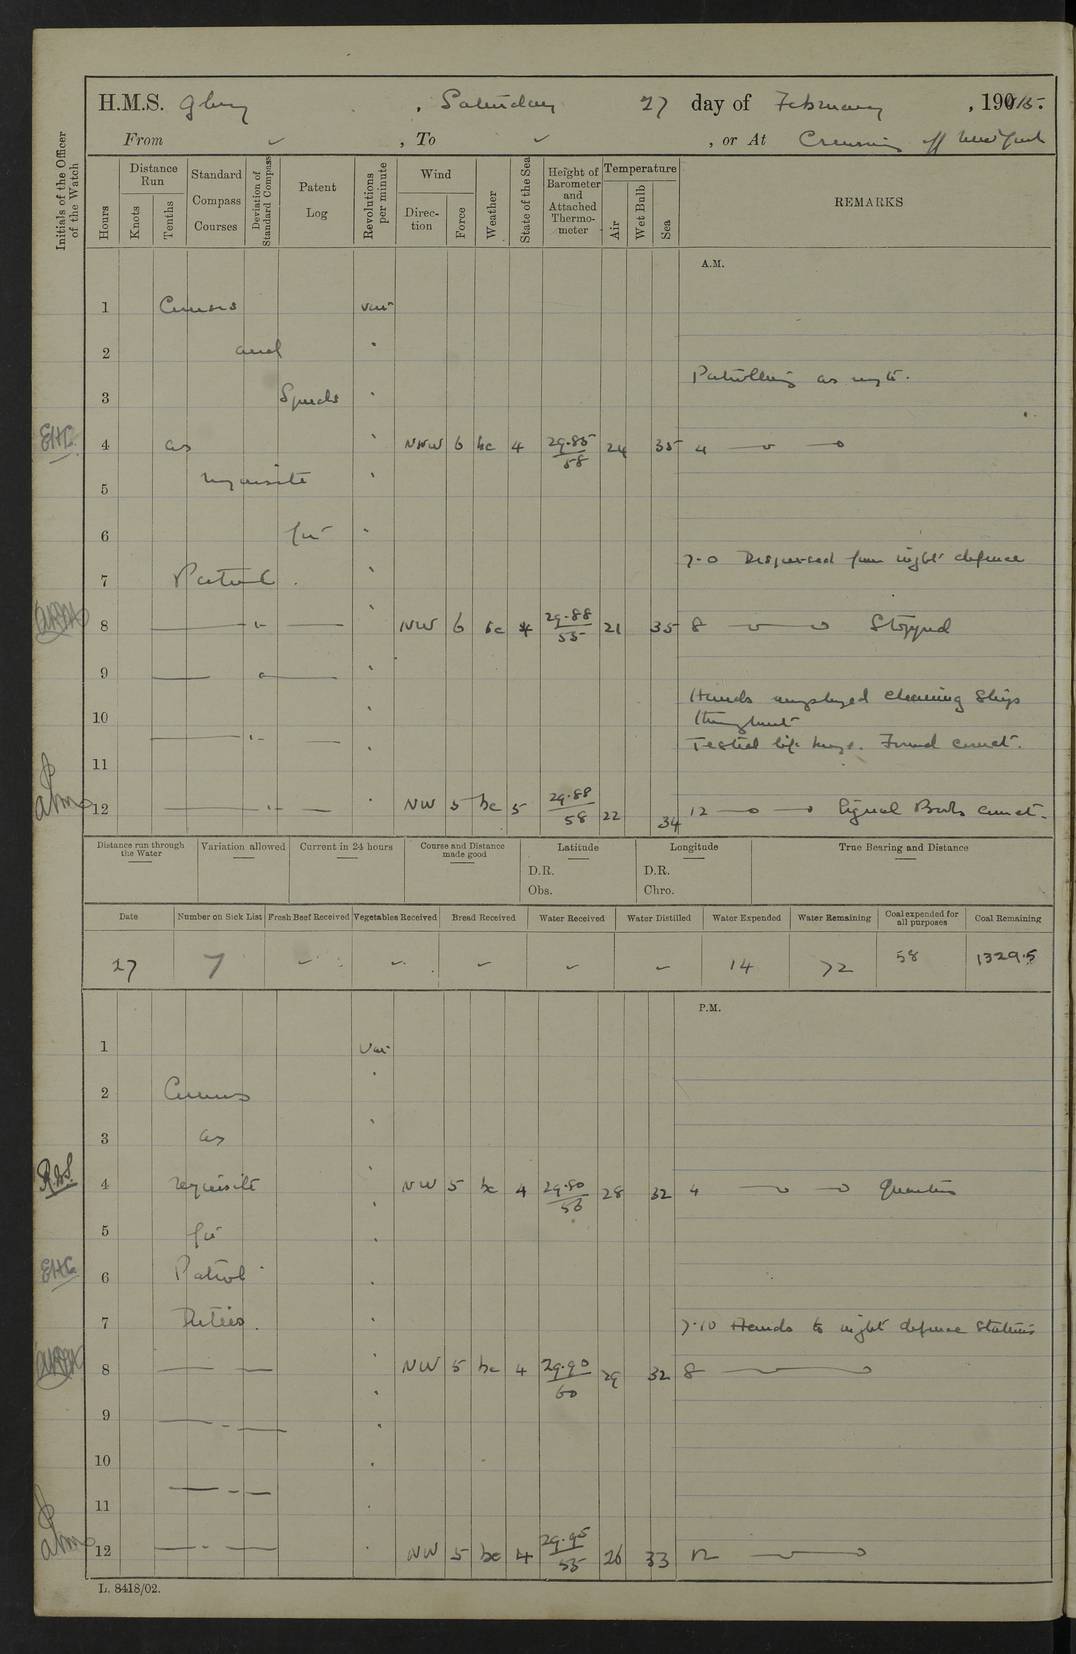 H.M.S. Glory , Saturday 27 day of February , 1915.
From ✓ , To ✓ , or At Cruising off New York
Initials of the Officer of the Watch
Hours
Distance Run
Knots
Tenths
Standard Compass Courses
Deviation of Standard Compass
Patent Log
Revolutions per minute
Wind
Direction
Force
Weather
State of the Sea
Height of Barometer and Attached Thermometer
Temperature
Air
Wet Bulb
Sea
REMARKS
A.M.
1 Courses var
2 and "
Patrolling as reqte.
3 Speeds "
EHC 4 as " NNW 6 bc 4 29.85/58 24 35 4
5 requisite "
6 for "
7.0 Dispersed from night defence
7 Patrol. "
8 — " — NW 6 bc 4 29.88/55 21 35 8 Stopped
9 — " —
Hands employed cleaning Ships
10 throughout
— " — Tested life buoys. Found correct.
11
12 — " — NW 5 bc 5 29.88/58 22 34 12 Signal Books correct.
Distance run through the Water
Variation allowed
Current in 24 hours
Course and Distance made good
Latitude
D.R.
Obs.
Longitude
D.R.
Chro.
True Bearing and Distance
Date Number on Sick List Fresh Beef Received Vegetables Received Bread Received Water Received Water Distilled Water Expended Water Remaining Coal expended for all purposes Coal Remaining
27 7 ✓ ✓ ✓ ✓ ✓ 14 72 58 1329.5
P.M.
1 var
2 Courses "
3 as "
4 requisite " NW 5 bc 4 29.80/56 28 32 4 Quarters
5 for "
EHC 6 Patrol "
7 Duties. " 7.10 Hands to night defence Stations
8 — — " NW 5 bc 4 29.90/60 29 32 8
9 — " — "
10 "
— " —
11 "
12 — " — " NW 5 bc 4 29.95/55 26 33 12
L. 8418/02.